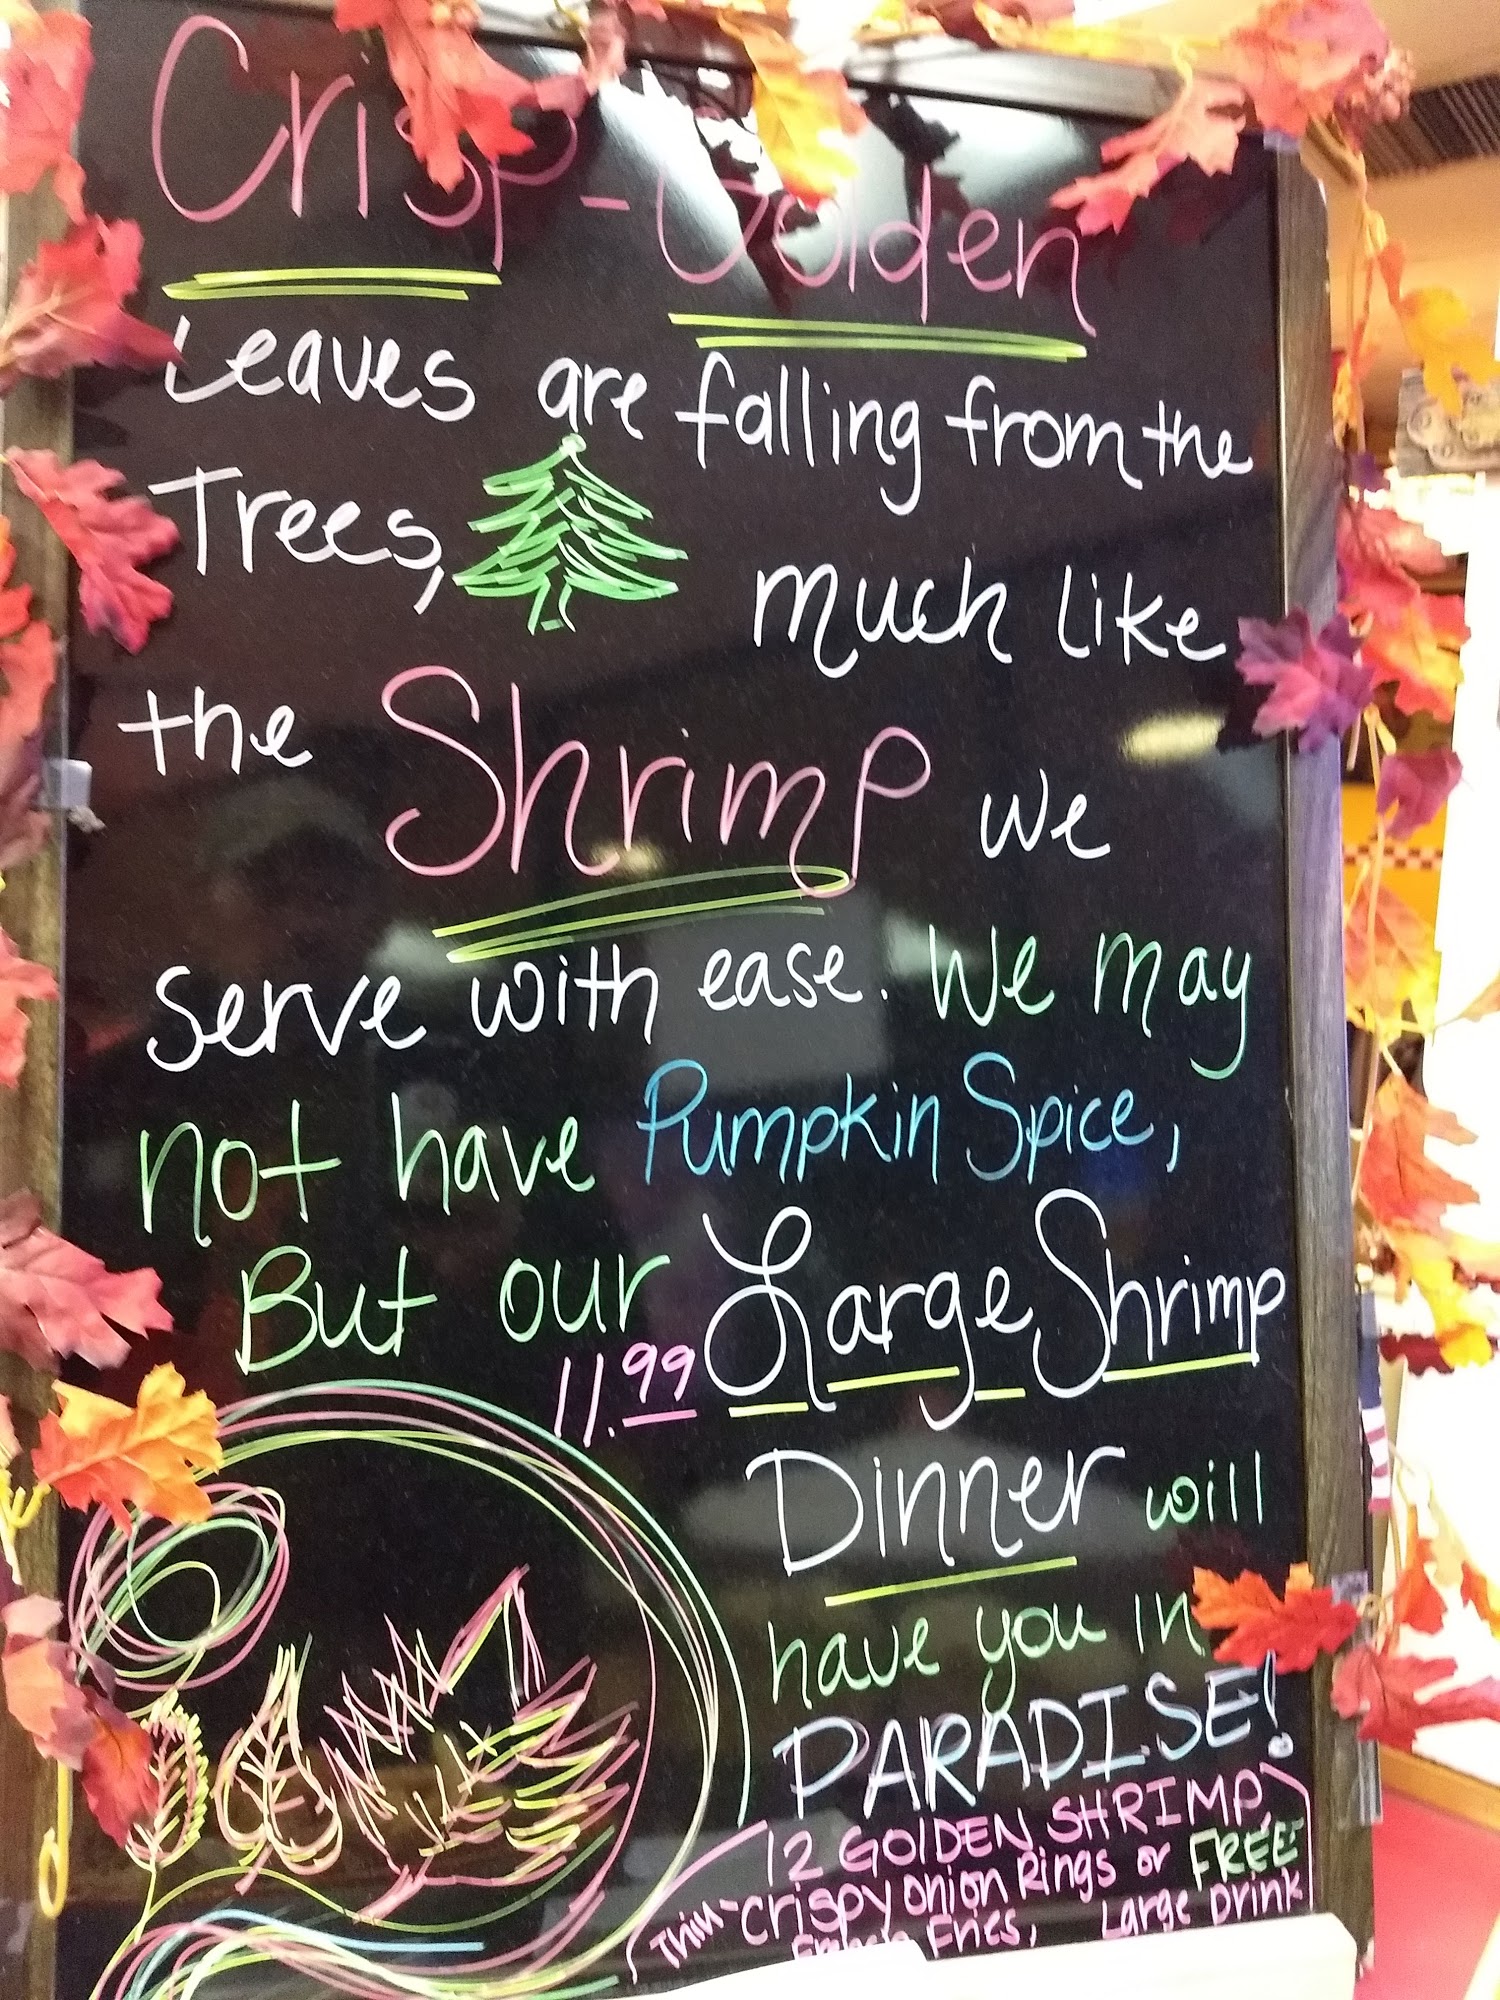 Crisp-Golden
Leaves are falling from the
Trees, much like
the Shrimp we
serve with ease. We may
not have Pumpkin Spice,
But our Large Shrimp
11.99
Dinner will
have you in
PARADISE!
12 GOLDEN SHRIMP,
Thin-Crispy Onion Rings or FREE
French Fries, Large Drink